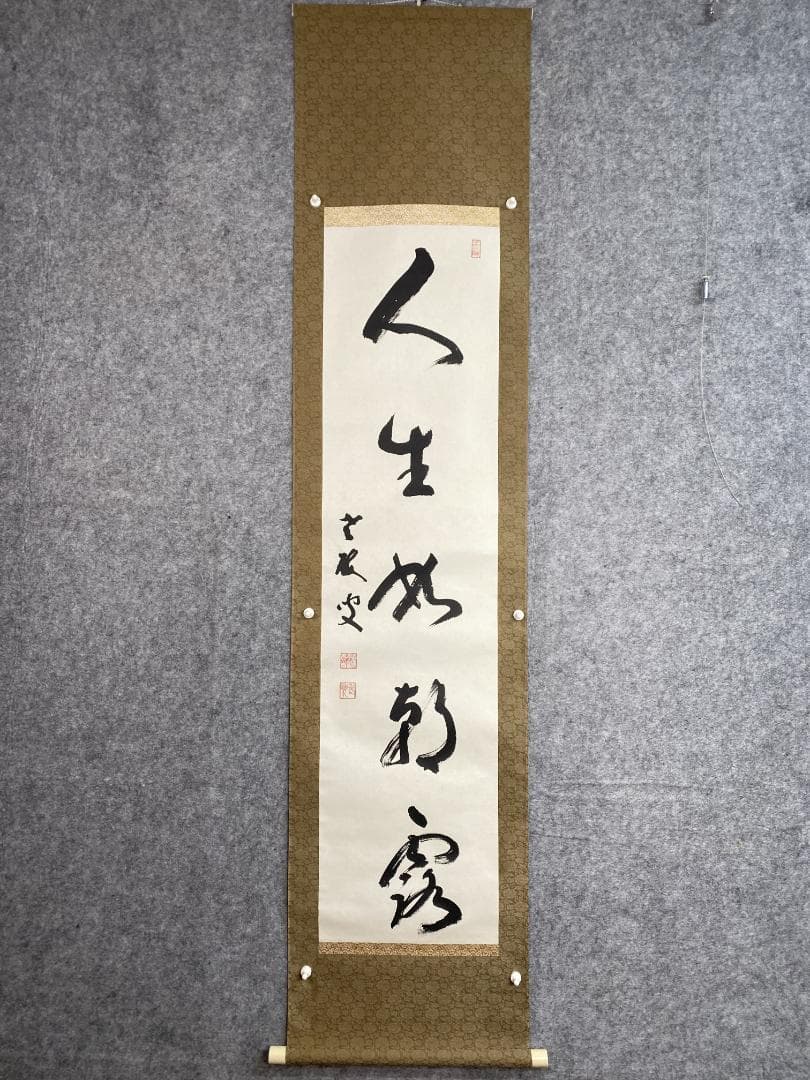 人生如朝露